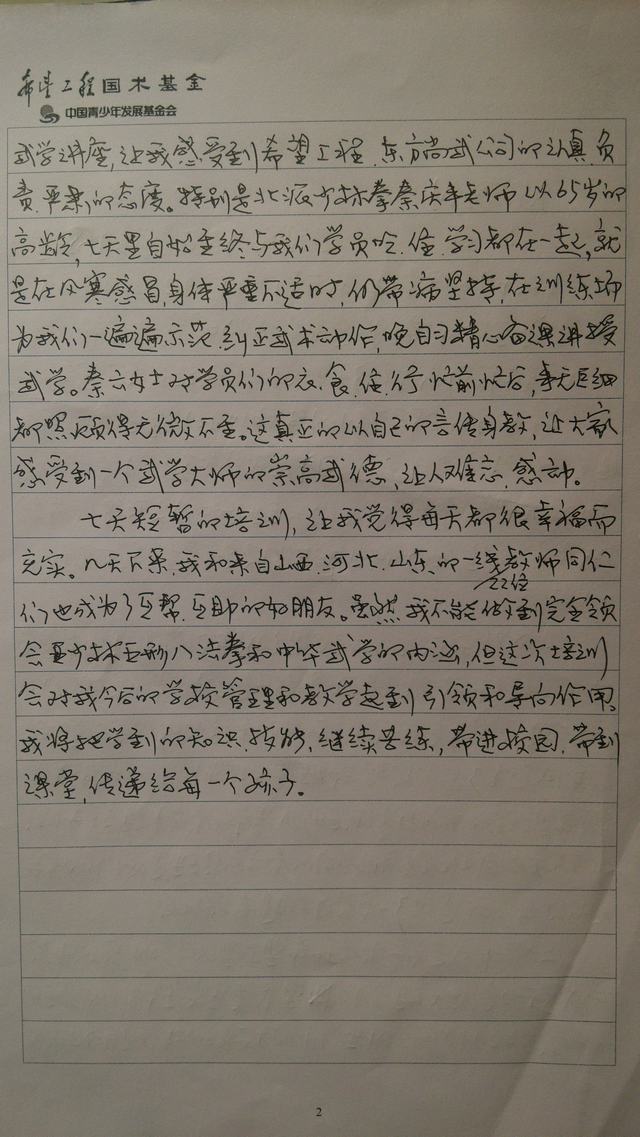 希望工程国术基金
中国青少年发展基金会
武学讲座,让我感受到希望工程.东方尚武公司的认真.负
责.严肃的态度。特别是北派少林拳秦庆丰老师以65岁的
高龄,七天里自始至终与我们学员吃.住.学习都在一起,就
是在风寒感冒,身体严重不适时,仍带病坚持,在训练场
为我们一遍遍示范.纠正武术动作,晚自习精心备课讲授
武学。秦女士对学员们的衣.食.住.行忙前忙后,事无巨细
都照顾得无微不至。这真正的以自己的言传身教,让大家
感受到一个武学大师的崇高武德,让人难忘.感动。
七天短暂的培训,让我觉得每天都很幸福而
充实。几天下来,我和来自山西.河北.山东的一线教师同仁
22位
们也成为了互帮.互助的好朋友。虽然我不能做到完全领
会少林五形八法拳和中华武学的内涵,但这次培训
会对我今后的学校管理和教学起到引领和导向作用。
我将把学到的知识.技能,继续苦练,带进校园.带到
课堂,传递给每一个孩子。
2